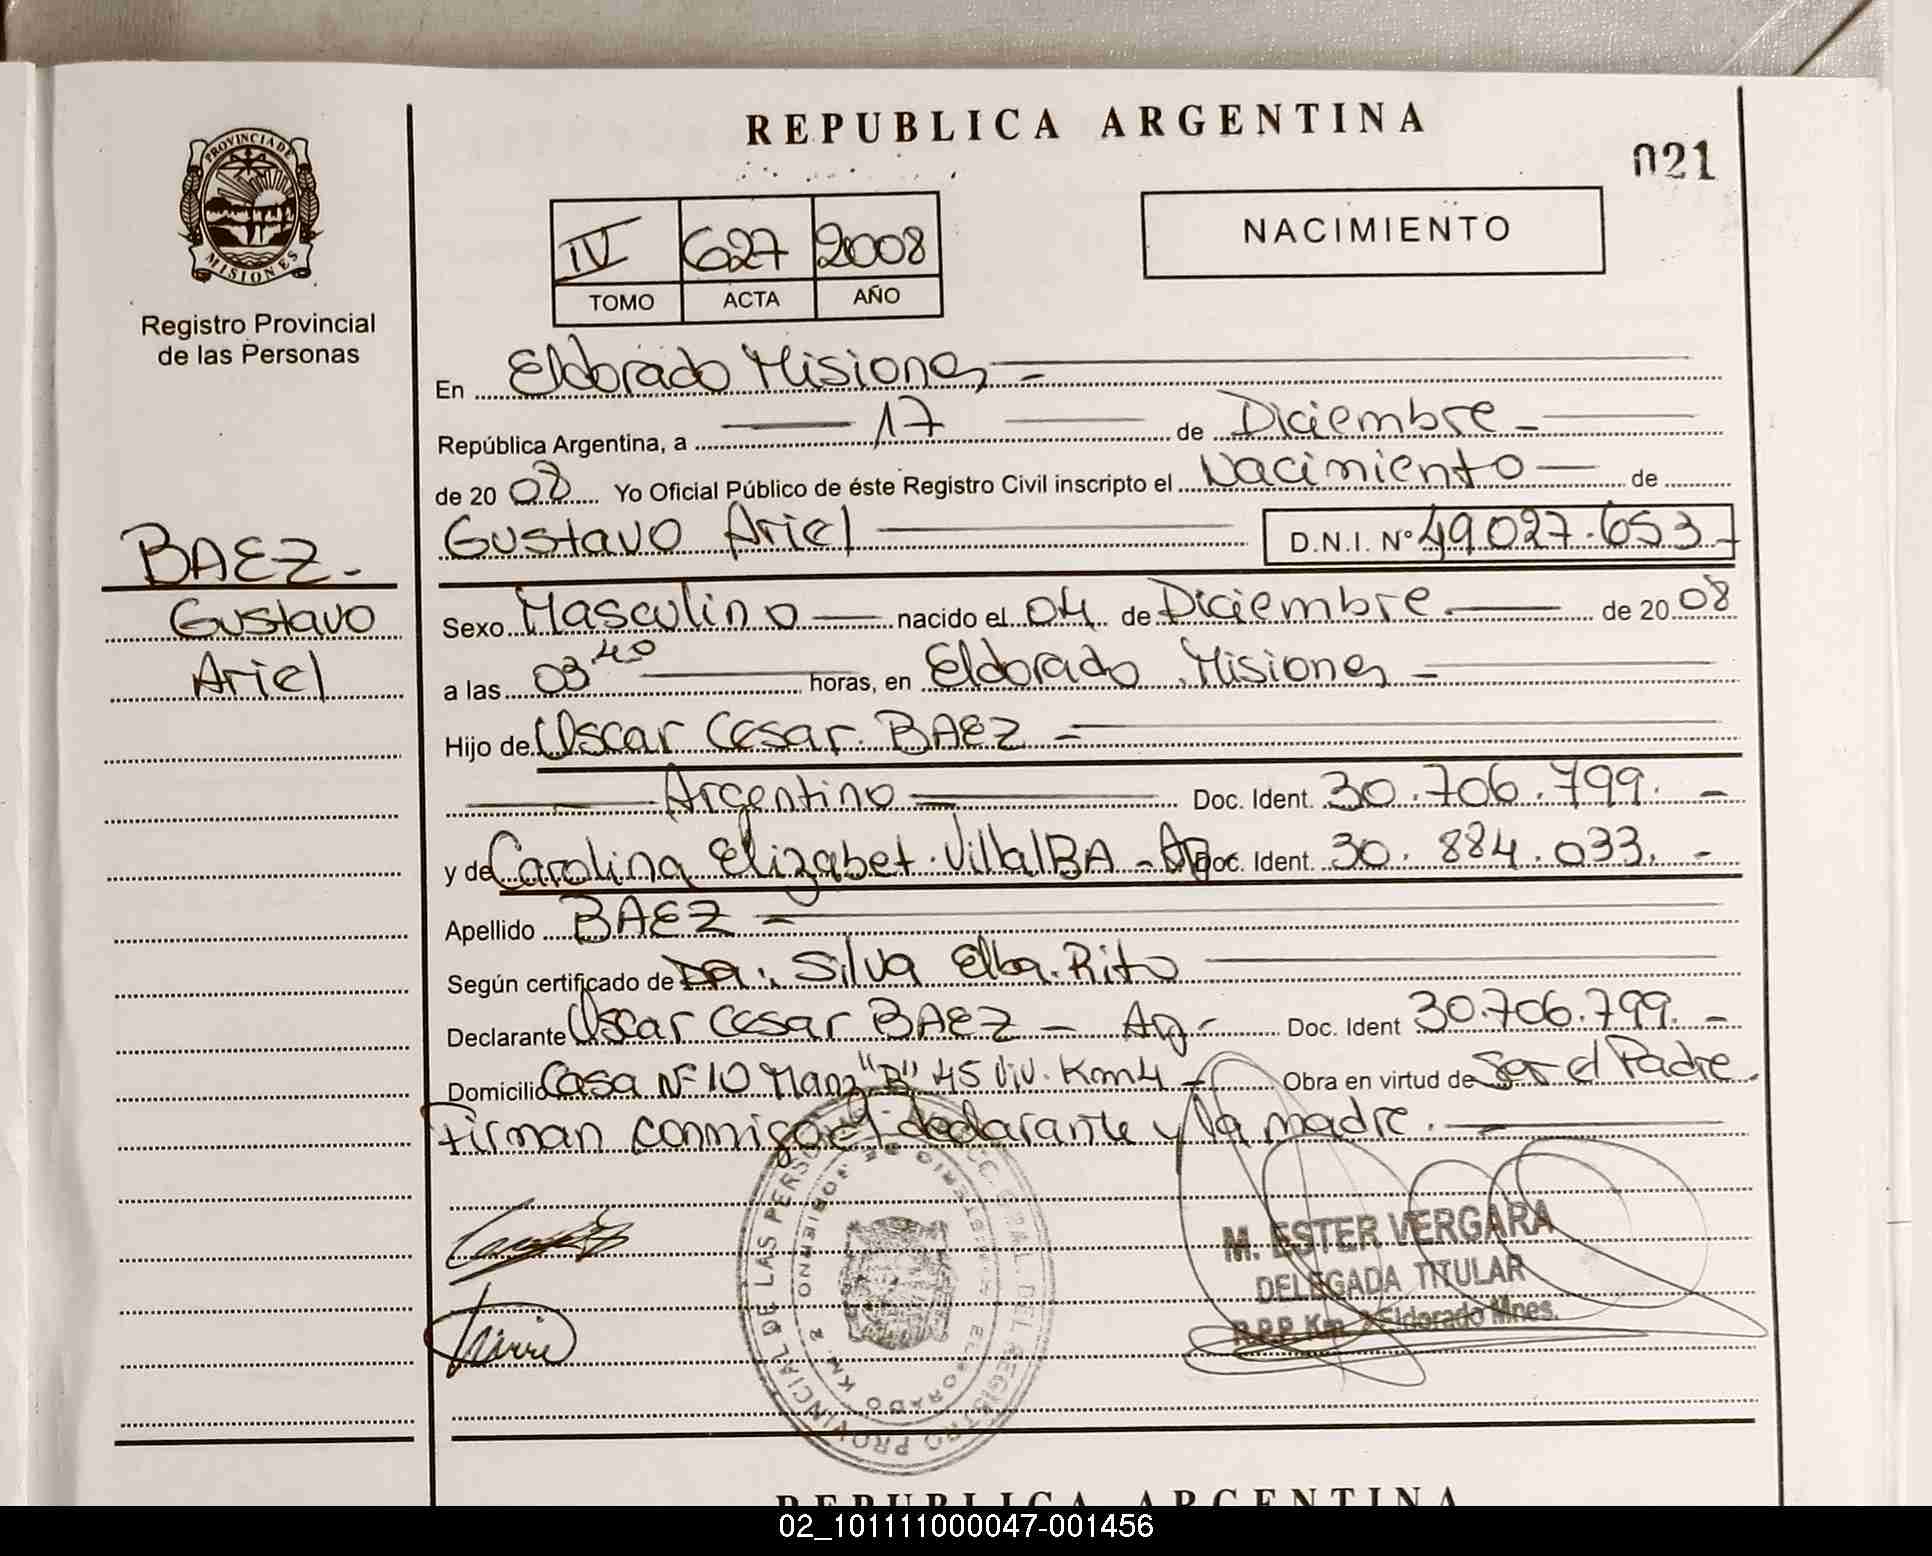 REPUBLICA ARGENTINA
021
PROVINCIA DE
MISIONES
Registro Provincial
de las Personas
IV 627 2008
TOMO ACTA AÑO
NACIMIENTO
En Eldorado Misiones
República Argentina, a 17 de Diciembre
de 20 08 Yo Oficial Público de éste Registro Civil inscripto el Nacimiento de
Gustavo Ariel D.N.I. Nº 49027.653
BAEZ.-
Gustavo
Ariel
Sexo Masculino nacido el 04 de Diciembre de 20 08
a las 03 40 horas, en Eldorado Misiones
Hijo de Oscar Cesar BAEZ
Argentino Doc. Ident. 30.706.799.-
y de Carolina Elizabet VillalBA - Ag Doc. Ident. 30.884.033.-
Apellido BAEZ
Según certificado de Dra. Silva Elba Rito
Declarante Oscar Cesar BAEZ - Ag - Doc. Ident 30.706.799.-
Domicilio Casa Nº 10 Manz "B" 45 Viv. Km 4 - Obra en virtud de Ser el Padre.
Firman conmigo el declarante y la madre.
REGISTRO PROVINCIAL DE LAS PERSONAS
ELDORADO KM. 2
M. ESTER VERGARA
DELEGADA TITULAR
R.P.P. Km. 2 Eldorado Mnes.
REPUBLICA ARGENTINA
02_101111000047-001456